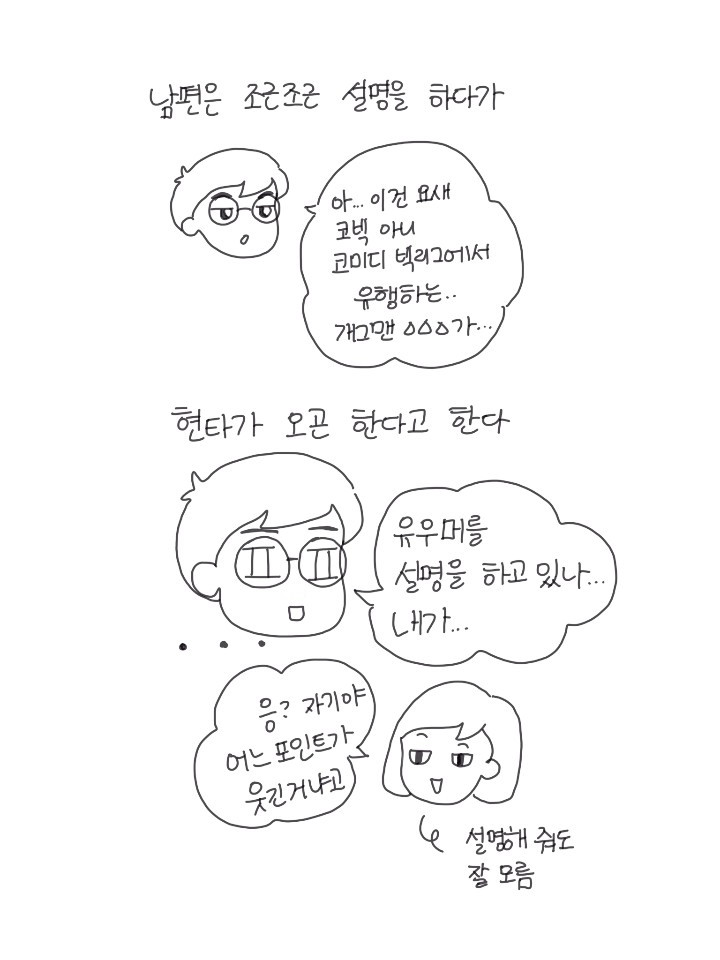 남편은 조근조근 설명을 하다가
아... 이건 요새
코빅 아니
코미디 빅리그에서
유행하는..
개그맨 ㅇㅇㅇ가...
현타가 오곤 한다고 한다
유우머를
설명을 하고 있나...
내가...
...
응? 자기야
어느 포인트가
웃긴거냐고
설명해 줘도
잘 모름